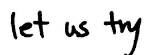 let us try